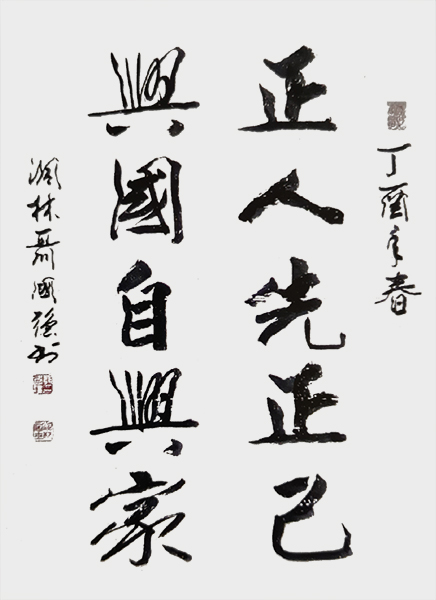 丁酉年春
正人先正己
興國自興家
林聶國强书